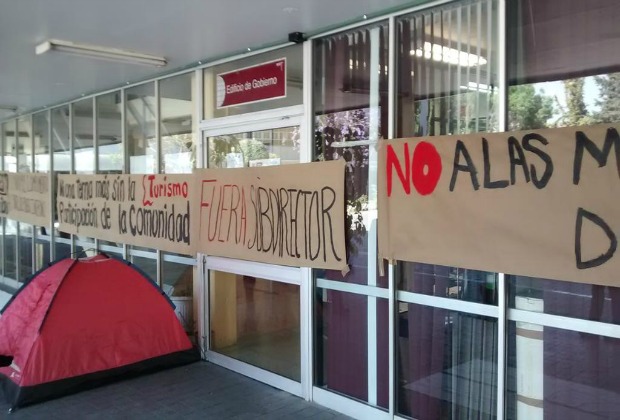 Edificio de Gobierno
terna más sin la
Turismo
Participación de la Comunidad
FUERA SUBDIRECTOR
NO A LAS M
D